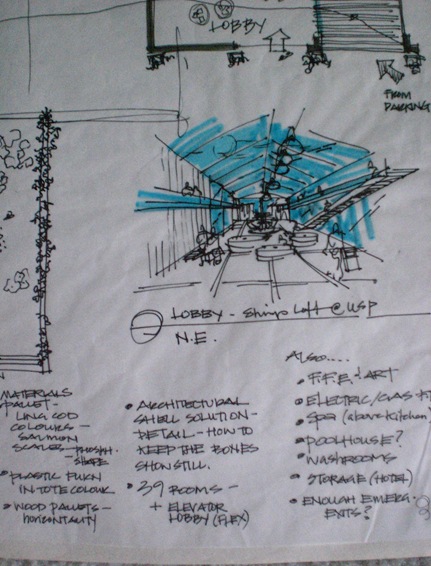 LOBBY
FROM
PARKING
LOBBY - Ship's Loft @ USP
N.E.
MATERIALS
PALLET -
LING COD
COLOURS -
SALMON
SCALES - 
SHAPE
• PLASTIC FURN
IN TOTE COLOUR
• WOOD PALLETS -
HORIZONTALITY
• ARCHITECTURAL
SHELL SOLUTION -
DETAIL - HOW TO
KEEP THE BONES
SHOW STILL.
• 39 ROOMS -
+ ELEVATOR
LOBBY (FLEX)
ALSO....
• F.F.E. + ART
• ELECTRIC/GAS
• SPA (above kitchen)
• POOLHOUSE?
• WASHROOMS
• STORAGE (HOTEL)
• ENOUGH EMERG.
EXITS?